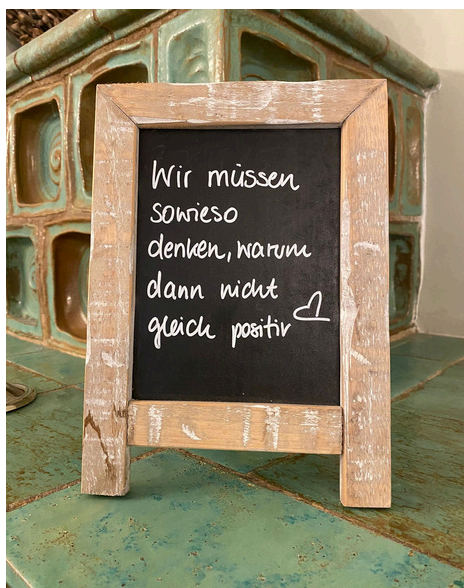 Wir müssen
sowieso
denken, warum
dann nicht
gleich positiv